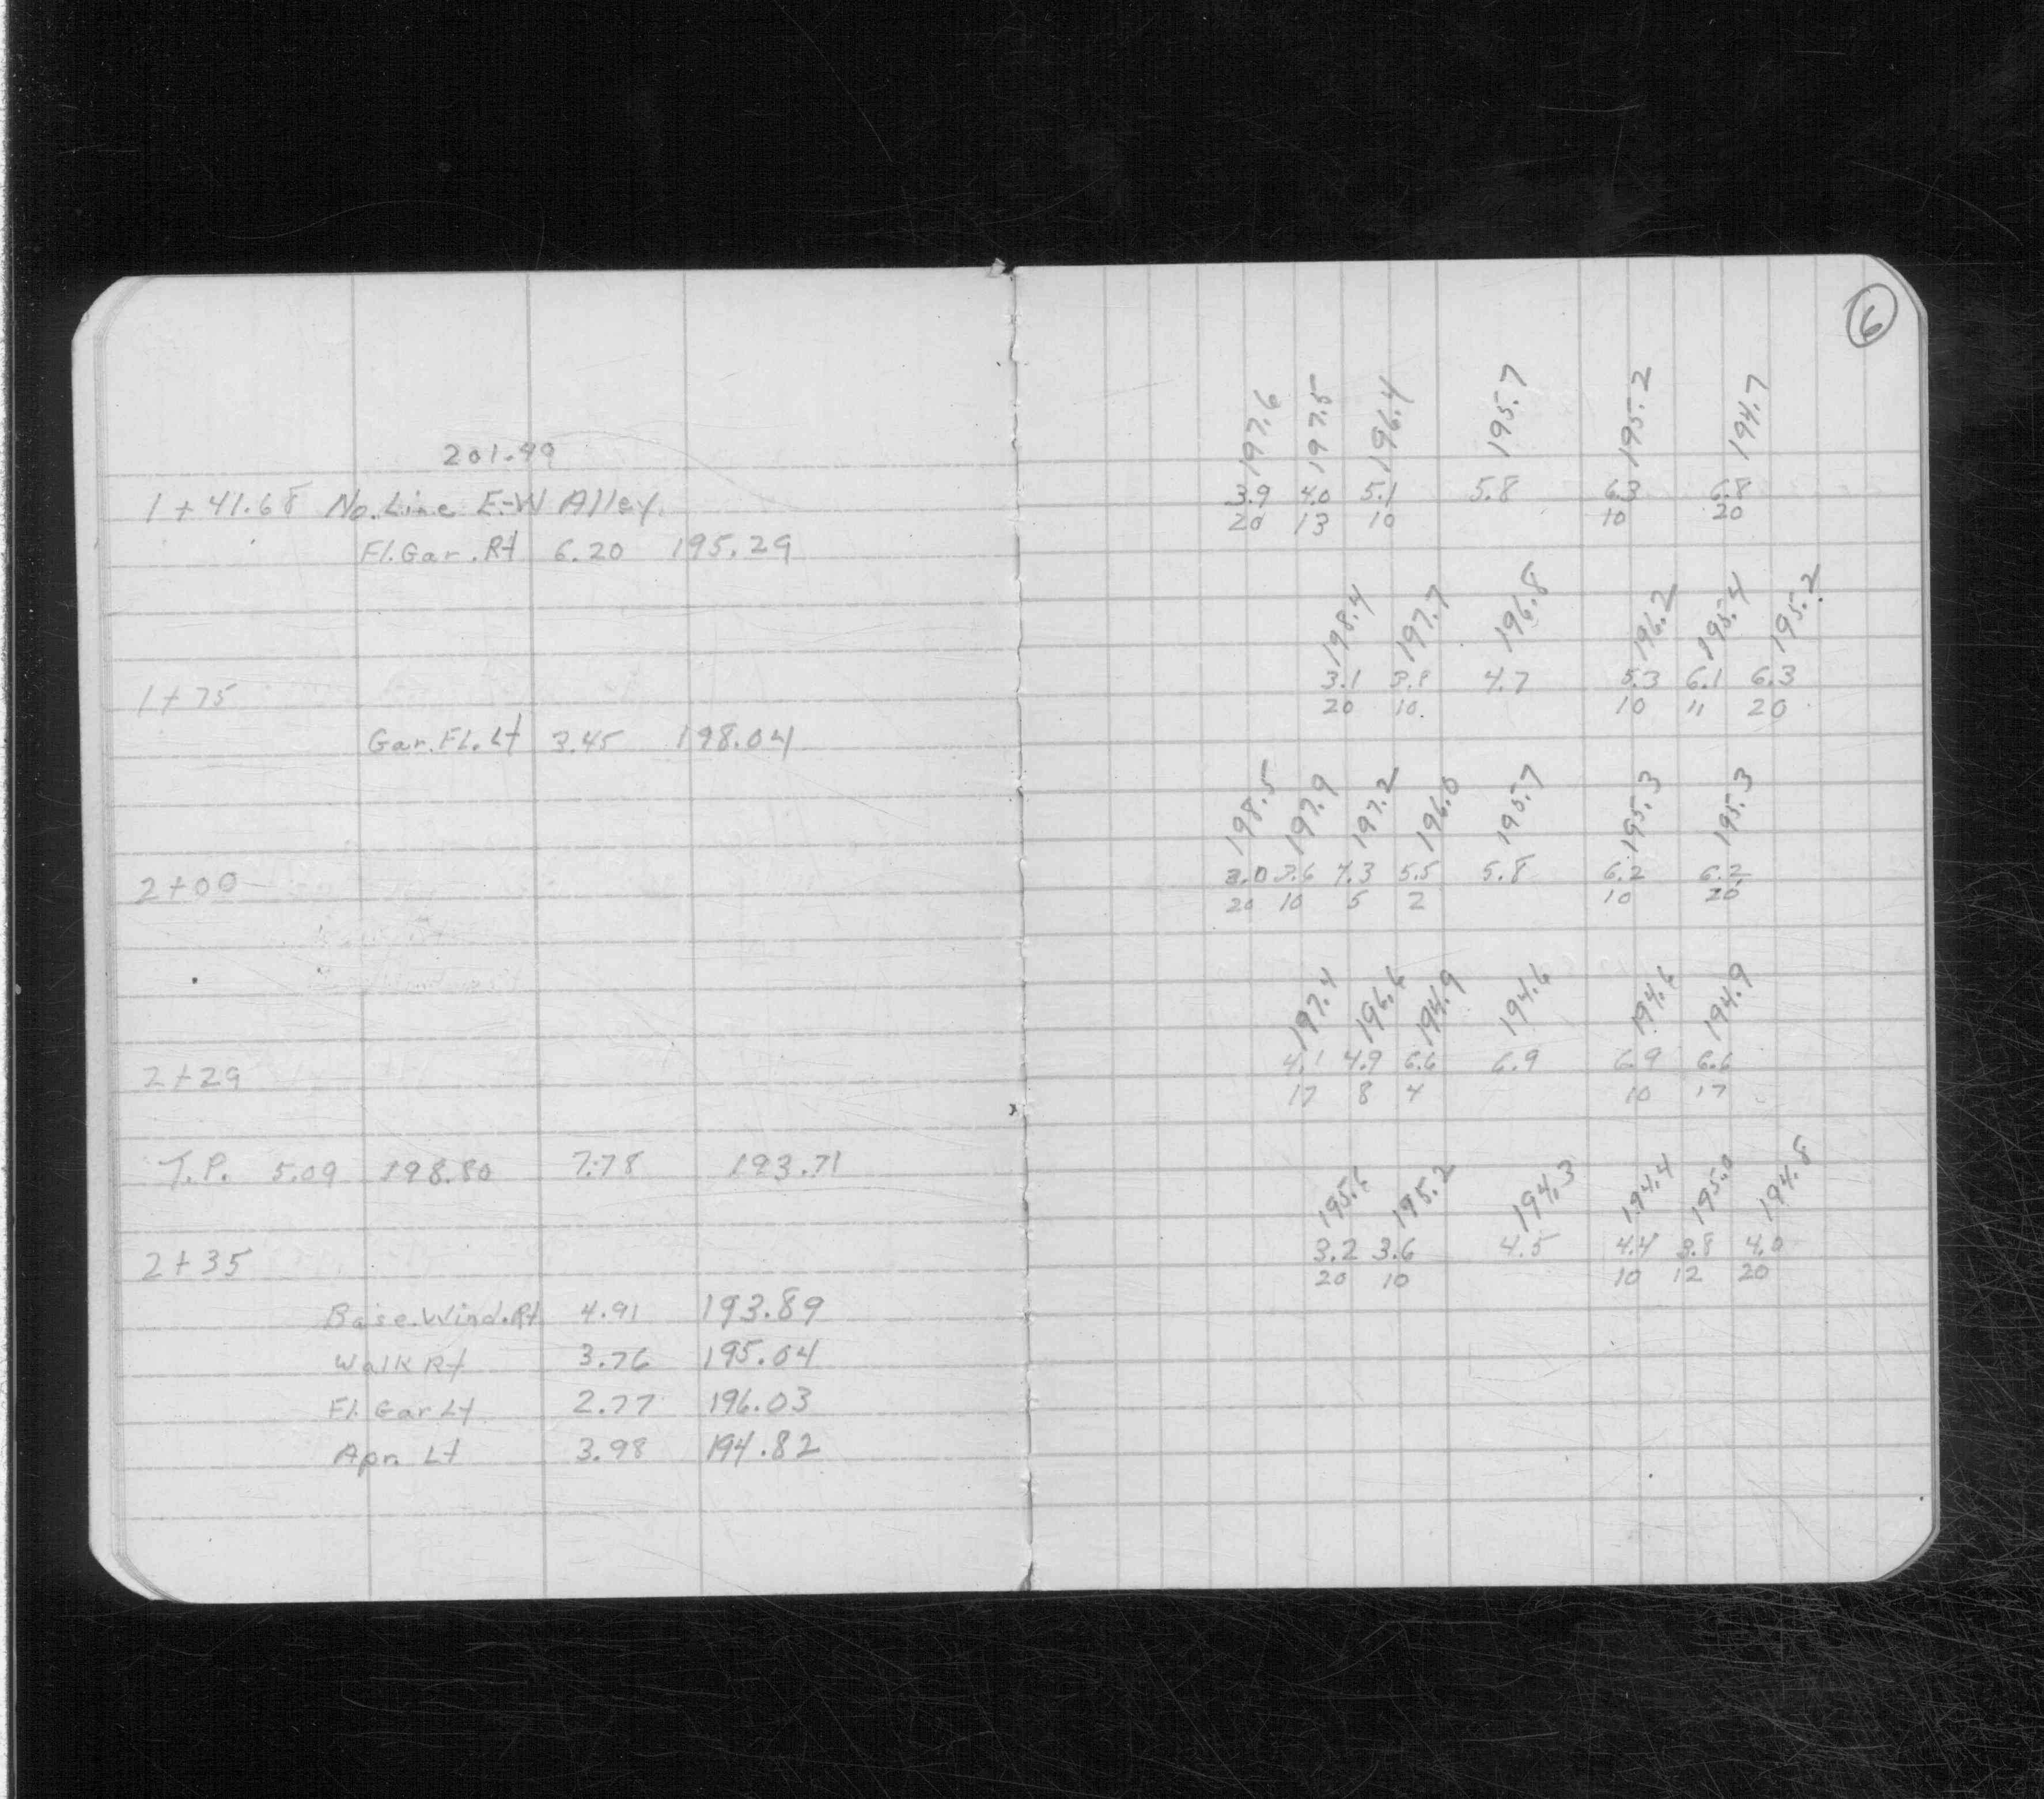 201.49
1+41.68 No. Line E-W Alley.
Fl. Gar. Rt 6.20 195.29
1+75
Gar. Fl. Lt 3.45 198.04
2+00
2+29
T.P. 5.09 198.80 7.78 193.71
2+35
Base. Wind. Rt 4.91 193.89
Walk Rt 3.76 195.04
Fl. Gar Lt 2.77 196.03
Apr. Lt 3.98 194.82
6
197.6 197.5 196.4 195.7 195.2 194.7
3.9 4.0 5.1 5.8 6.3 6.8
20 13 10 10 20
198.4 197.7 196.8 196.2 195.4 195.2
3.1 3.8 4.7 5.3 6.1 6.3
20 10 10 11 20
198.5 197.9 197.2 196.0 195.7 195.3 195.3
3.0 3.6 4.3 5.5 5.8 6.2 6.2
20 10 5 2 10 20
197.4 196.6 194.9 194.6 194.6 194.9
4.1 4.9 6.6 6.9 6.9 6.6
17 8 4 10 17
195.6 195.2 194.3 194.4 195.0 194.8
3.2 3.6 4.5 4.4 3.8 4.0
20 10 10 12 20